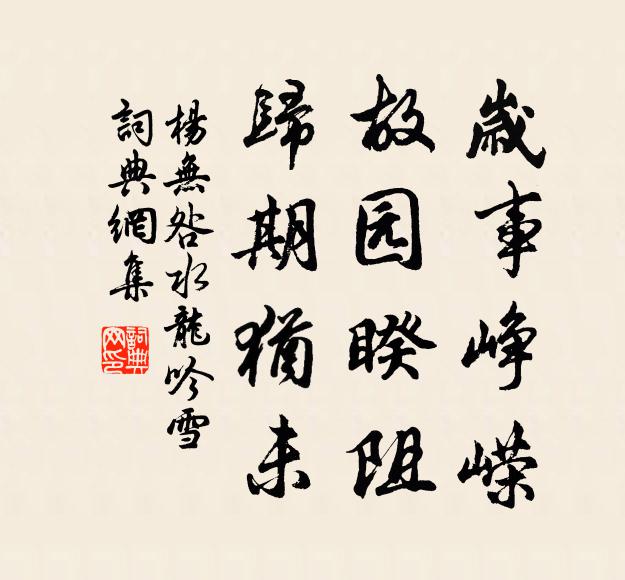 歲事峥嵘
故园暌阻
歸期猶未
楊無咎水龍吟雪
詞典網集
詞典网印